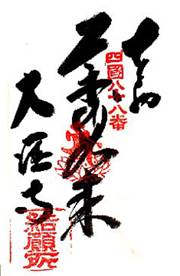 奉納
四國八十八番
如来
大窪寺
結願所